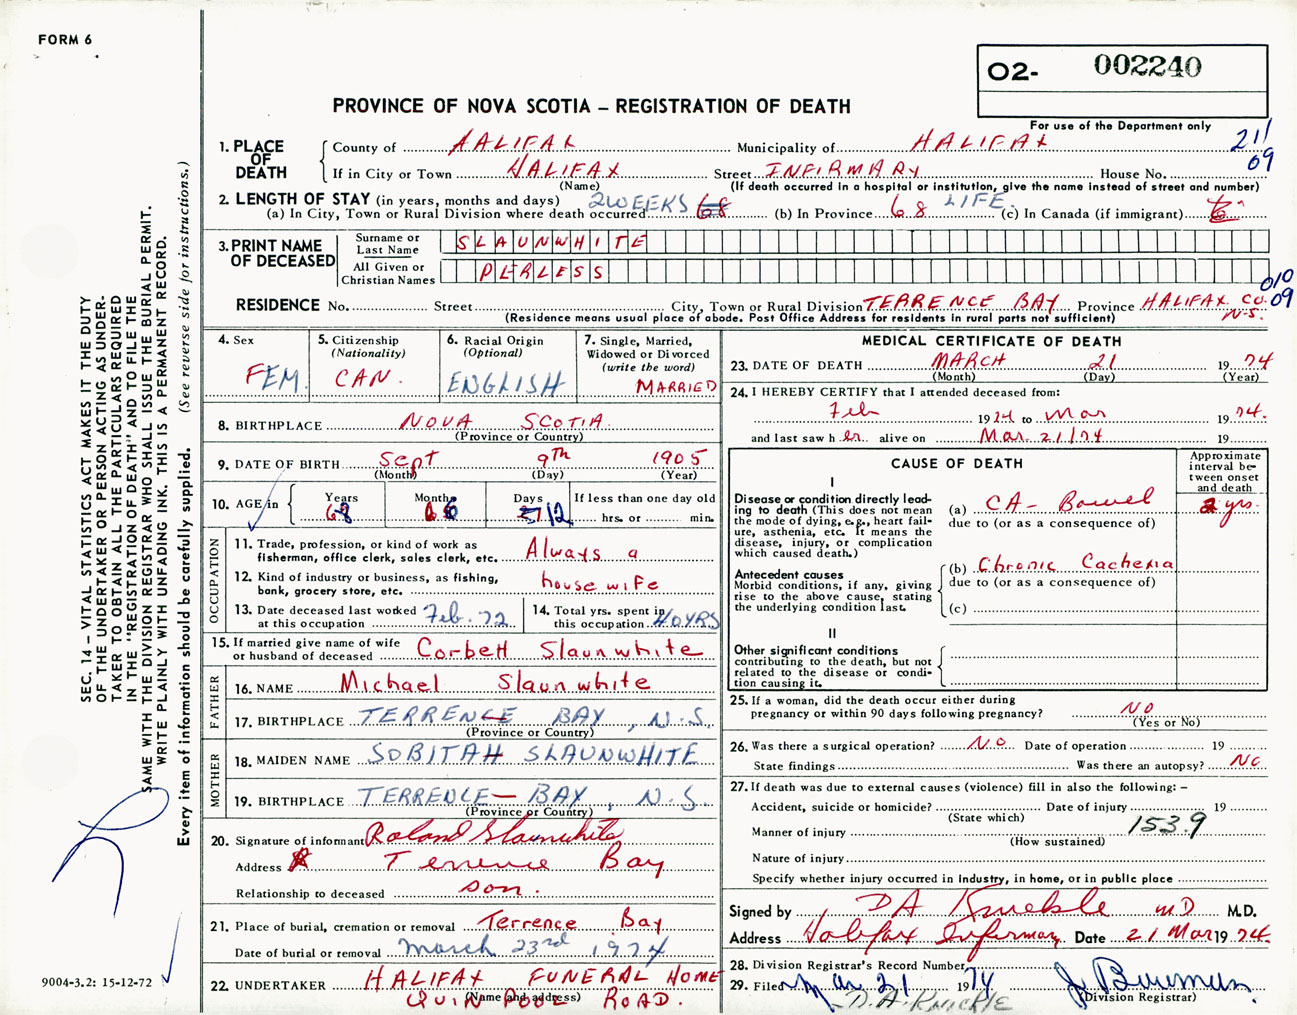 FORM 6
O2- 002240
PROVINCE OF NOVA SCOTIA – REGISTRATION OF DEATH
For use of the Department only
211
09
1. PLACE OF DEATH
County of HALIFAX Municipality of HALIFAX
If in City or Town HALIFAX Street INFIRMARY House No.
(Name) (If death occurred in a hospital or institution, give the name instead of street and number)
2. LENGTH OF STAY (in years, months and days)
(a) In City, Town or Rural Division where death occurred 2 WEEKS 68 (b) In Province 68 LIFE (c) In Canada (if immigrant)
3. PRINT NAME OF DECEASED
Surname or Last Name SLAUNWHITE
All Given or Christian Names PERLESS
010
09
RESIDENCE No. Street City, Town or Rural Division TERRENCE BAY Province HALIFAX CO. N.S.
(Residence means usual place of abode. Post Office Address for residents in rural parts not sufficient)
4. Sex FEM.
5. Citizenship (Nationality) CAN.
6. Racial Origin (Optional) ENGLISH
7. Single, Married, Widowed or Divorced (write the word) MARRIED
8. BIRTHPLACE NOVA SCOTIA
(Province or Country)
9. DATE OF BIRTH Sept 9th 1905
(Month) (Day) (Year)
10. AGE in Years 68 Months 6 Days 12 If less than one day old
hrs. or min.
OCCUPATION
11. Trade, profession, or kind of work as fisherman, office clerk, sales clerk, etc. Always a
12. Kind of industry or business, as fishing, bank, grocery store, etc. housewife
13. Date deceased last worked at this occupation Feb. 72
14. Total yrs. spent in this occupation 40 YRS
15. If married give name of wife or husband of deceased Corbett Slaunwhite
FATHER
16. NAME Michael Slaunwhite
17. BIRTHPLACE TERRENCE BAY, N.S.
(Province or Country)
MOTHER
18. MAIDEN NAME SOBITAH SLAUNWHITE
19. BIRTHPLACE TERRENCE BAY, N.S.
(Province or Country)
20. Signature of informant Roland Slaunwhite
Address Terrence Bay
Relationship to deceased son.
21. Place of burial, cremation or removal Terrence Bay
Date of burial or removal March 23rd 1974
22. UNDERTAKER HALIFAX FUNERAL HOME
(Name and address) QUINPOOL ROAD.
MEDICAL CERTIFICATE OF DEATH
23. DATE OF DEATH MARCH 21 1974
(Month) (Day) (Year)
24. I HEREBY CERTIFY that I attended deceased from:
Feb 1974 to Mar 1974.
and last saw her alive on Mar. 21/74 19
CAUSE OF DEATH
Approximate interval between onset and death
I
Disease or condition directly leading to death (This does not mean the mode of dying, e.g., heart failure, asthenia, etc. It means the disease, injury, or complication which caused death.)
(a) CA - Bowel 2 yrs.
due to (or as a consequence of)
Antecedent causes
Morbid conditions, if any, giving rise to the above cause, stating the underlying condition last.
(b) Chronic Cachexia
due to (or as a consequence of)
(c)
II
Other significant conditions
contributing to the death, but not related to the disease or condition causing it.
25. If a woman, did the death occur either during pregnancy or within 90 days following pregnancy? NO
(Yes or No)
26. Was there a surgical operation? NO Date of operation 19
State findings Was there an autopsy? NO
27. If death was due to external causes (violence) fill in also the following: –
Accident, suicide or homicide? Date of injury 19
(State which)
Manner of injury 153.9
(How sustained)
Nature of injury
Specify whether injury occurred in industry, in home, or in public place
Signed by DA Knickle MD M.D.
Address Halifax Infirmary Date 21 Mar 1974.
28. Division Registrar's Record Number
29. Filed Mar. 21 1974 J Bowman
(Division Registrar)
D.A. KNICKLE
SEC. 14 – VITAL STATISTICS ACT MAKES IT THE DUTY
OF THE UNDERTAKER OR PERSON ACTING AS UNDER-
TAKER TO OBTAIN ALL THE PARTICULARS REQUIRED
IN THE "REGISTRATION OF DEATH" AND TO FILE THE
SAME WITH THE DIVISION REGISTRAR WHO SHALL ISSUE THE BURIAL PERMIT.
WRITE PLAINLY WITH UNFADING INK. THIS IS A PERMANENT RECORD.
Every item of information should be carefully supplied. (See reverse side for instructions.)
9004-3.2: 15-12-72